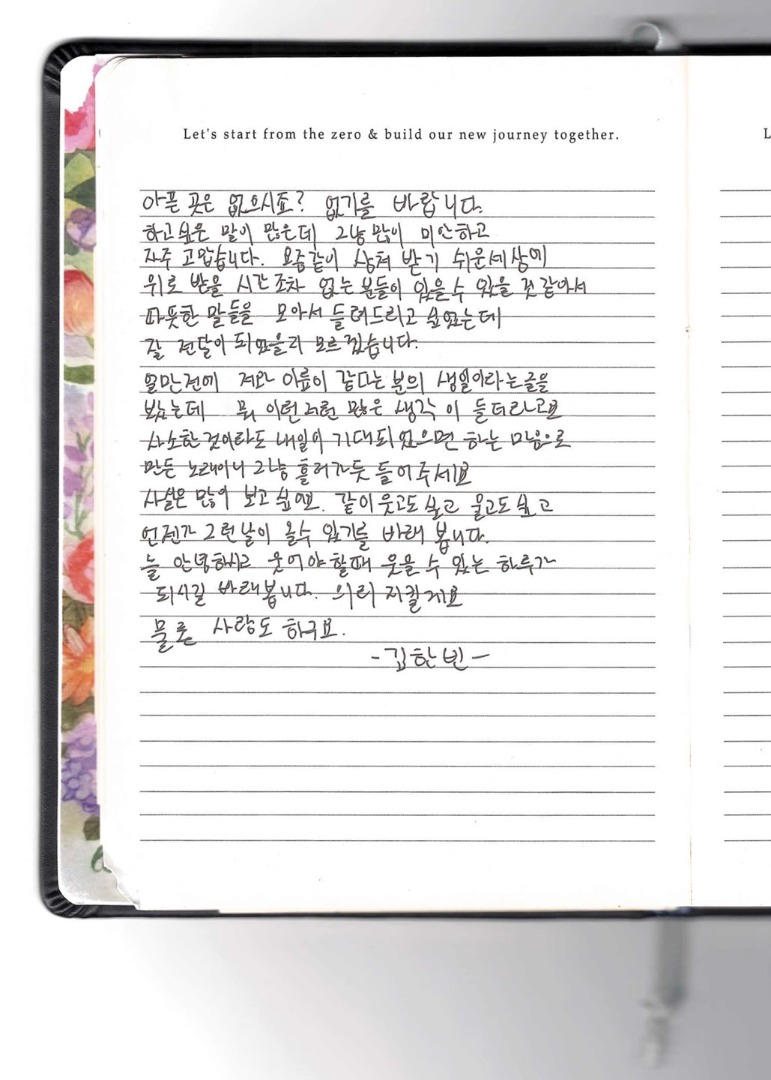 Let's start from the zero & build our new journey together.
L
아픈 곳은 없으시죠? 없기를 바랍니다.
하고싶은 말이 많은데 그냥 많이 미안하고
자주 고맙습니다. 요즘같이 상처 받기 쉬운세상에
위로 받을 시간조차 없는 분들이 있을수 있을 것 같아서
따뜻한 말들을 모아서 들려드리고 싶었는데
잘 전달이 되었을지 모르겠습니다.
얼마전에 저와 이름이 같다는 분의 생일이라는글을
봤는데 뭐 이런저런 많은 생각이 들더라고요
사소한것이라도 내일이 기대되었으면 하는 마음으로
만든 노래이니 그냥 흘러가듯 들어주세요
사실은 많이 보고싶어요. 같이 웃고도싶고 울고도싶고
언젠가 그런날이 올수 있기를 바래 봅니다.
늘 안녕하시고 웃어야 할때 웃을 수 있는 하루가
되시길 바래봅니다. 의리 지킬게요
물론 사랑도 하구요.
-김한빈-